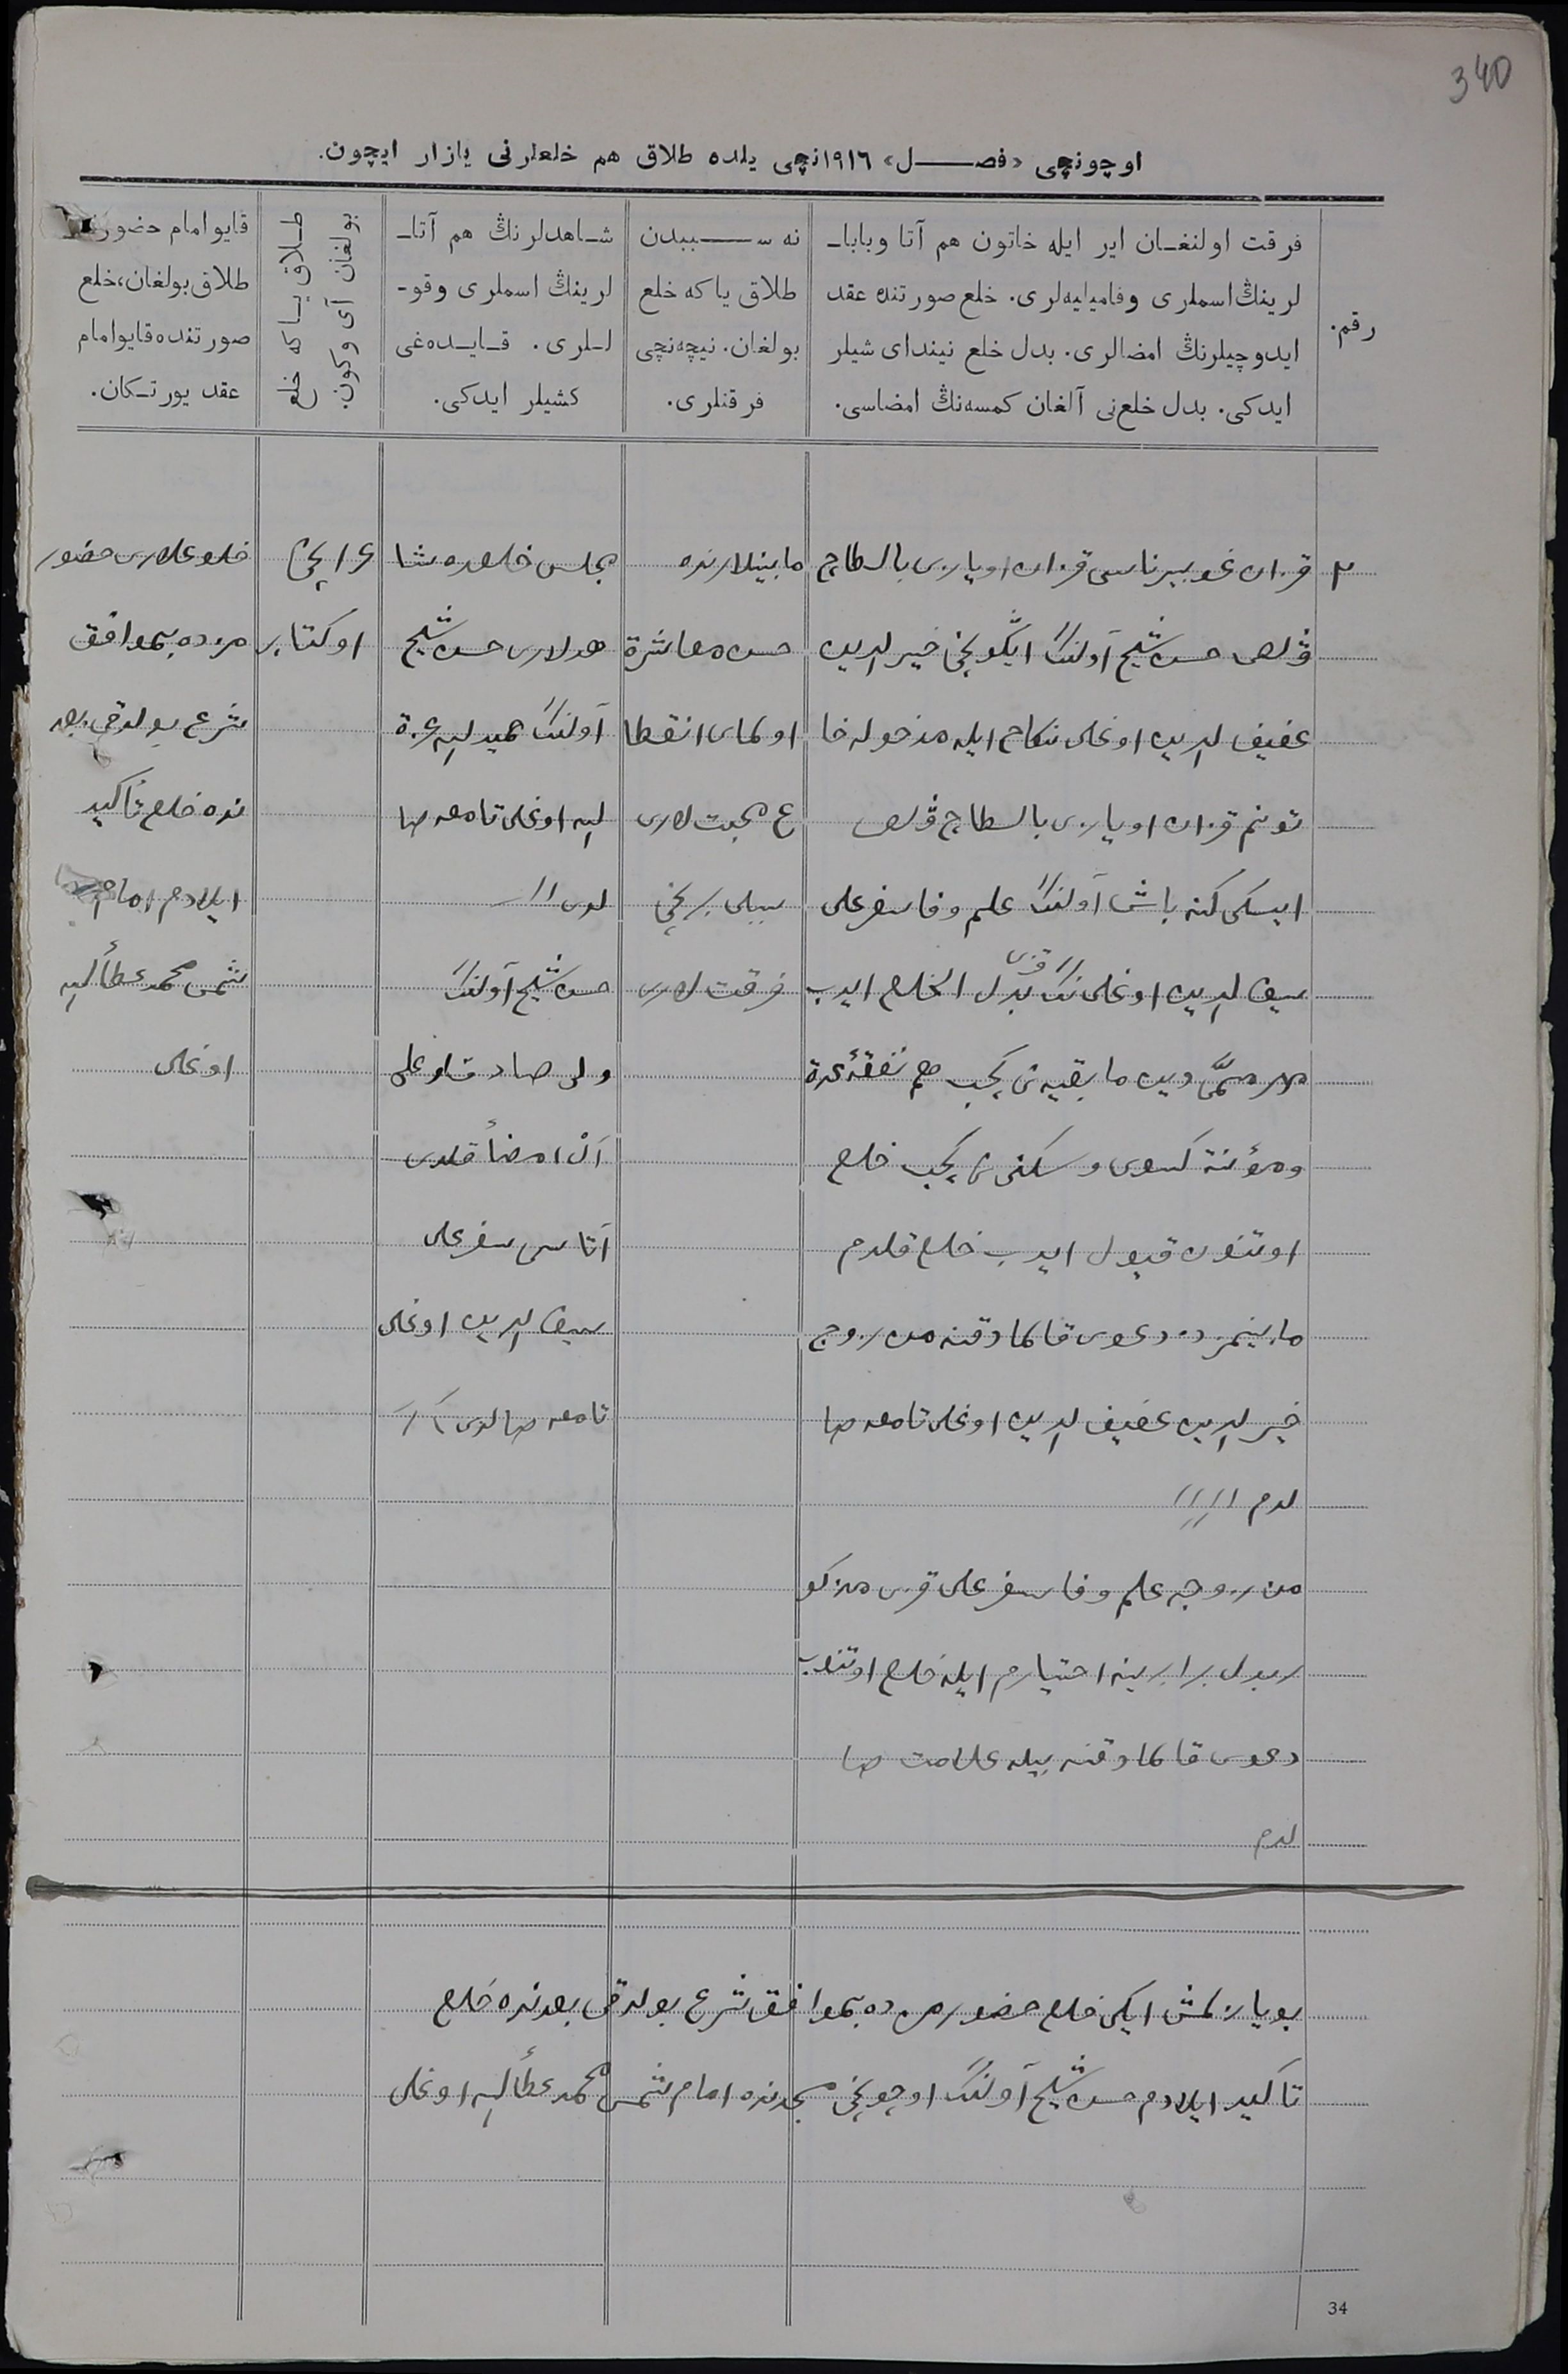 340
اوچونچی «فصـــل» ١٩١٦نچی یلده طلاق هم خلعلرنی یازار ایچون.
رقم.
فرقت اولنغـان ایر ایله خاتون هم آتا وبابا-
لرینڭ اسملری وفامیلیه‌لری. خلع صورتنده عقد
ایدوچیلرنڭ امضالری. بدل خلع نیندای شیلر
ایدکی. بدل خلع‌نی آلغان کمسه‌نڭ امضاسی.
نه ســببدن
طلاق یاکه خلع
بولغان. نیچه‌نچی
فرقتلری.
شـاهدلرنڭ هم آتا-
لرینڭ اسملری وقو-
لـلری. قـایـده‌غی
کشیلر ایدکی.
طـلاق یـاکه خلع
بولغان آی وکون.
قایو امام حضورنده
طلاق بولغان، خلع
صورتنده قایو امام
عقد یورتـکان.
٢
قزان غوبیرناسی قزان اویازی بالطاچ
ڤلص حسن شیخ آولنڭ ایکونچی خیر الدین
عفیف الدین اوغلی نکاح ایله مدخوله خا
تونم قزان اویازی بالطاچ ڤلص
ایسکی کنه باش آولنڭ علم وفا سفرعلی
سیف الدین اوغلی نڭ قزی بدل الخلع ایدب
مهر مسمّی دین ما بقیه نی کچب هم نفقهٔ عدة
ومؤنة کسوی و سکنی نی کچب خلع
اوتنون قبول ایدب خلع قلدم
مابینمزده دعوی قالمادقنه من زوج
خیر الدین عفیف الدین اوغلی تامغه صا
لدم
من زوجه علم وفا سفرعلی قزی مذکو
ر بدل برابرینه اختیارم ایله خلع اوتنوب
دعوی قالمادقنه بیله علامت صا
لدم
مابینلارنده
حسن معاشرة
اولمای انقطا
ع محبت لاری
سببلی برنچی
فرقت لاری
مجلس خلعده شا
هدلاری حسن شیخ
آولنڭ حمید الله عزة
الله اوغلی تامغه صا
لدی
حسن شیخ آولنڭ
ولی صادق اوغلی
آڭا امضأ قلدی
آتاسی سفرعلی
سیف الدین اوغلی
تامغه صالدی
اوکتابر
خلوعلاری حضور
مزده بموافق
شرع بولدقی بعد
نده خلع تأکید
ایلادم امام
شمس محمد عطأ الله
اوغلی
بو یازلمش ایکی خلع حضورمزده بموافق شرع بولدقی بعدنده خلع
تاکید ایلادم حسن شیخ آولنڭ اوچونچی مسجدنده امام شمس محمد عطأ الله اوغلی
34